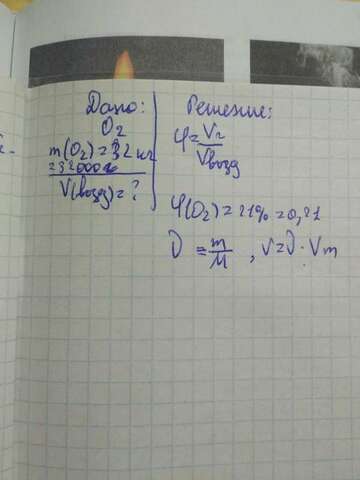 Дано:
O₂
m(O₂)=32 кг
=32000г
V(возд)=?
Решение:
φ=Vг/Vвозд
φ(O₂)=21%=0,21
ν=m/M, V=ν·Vm